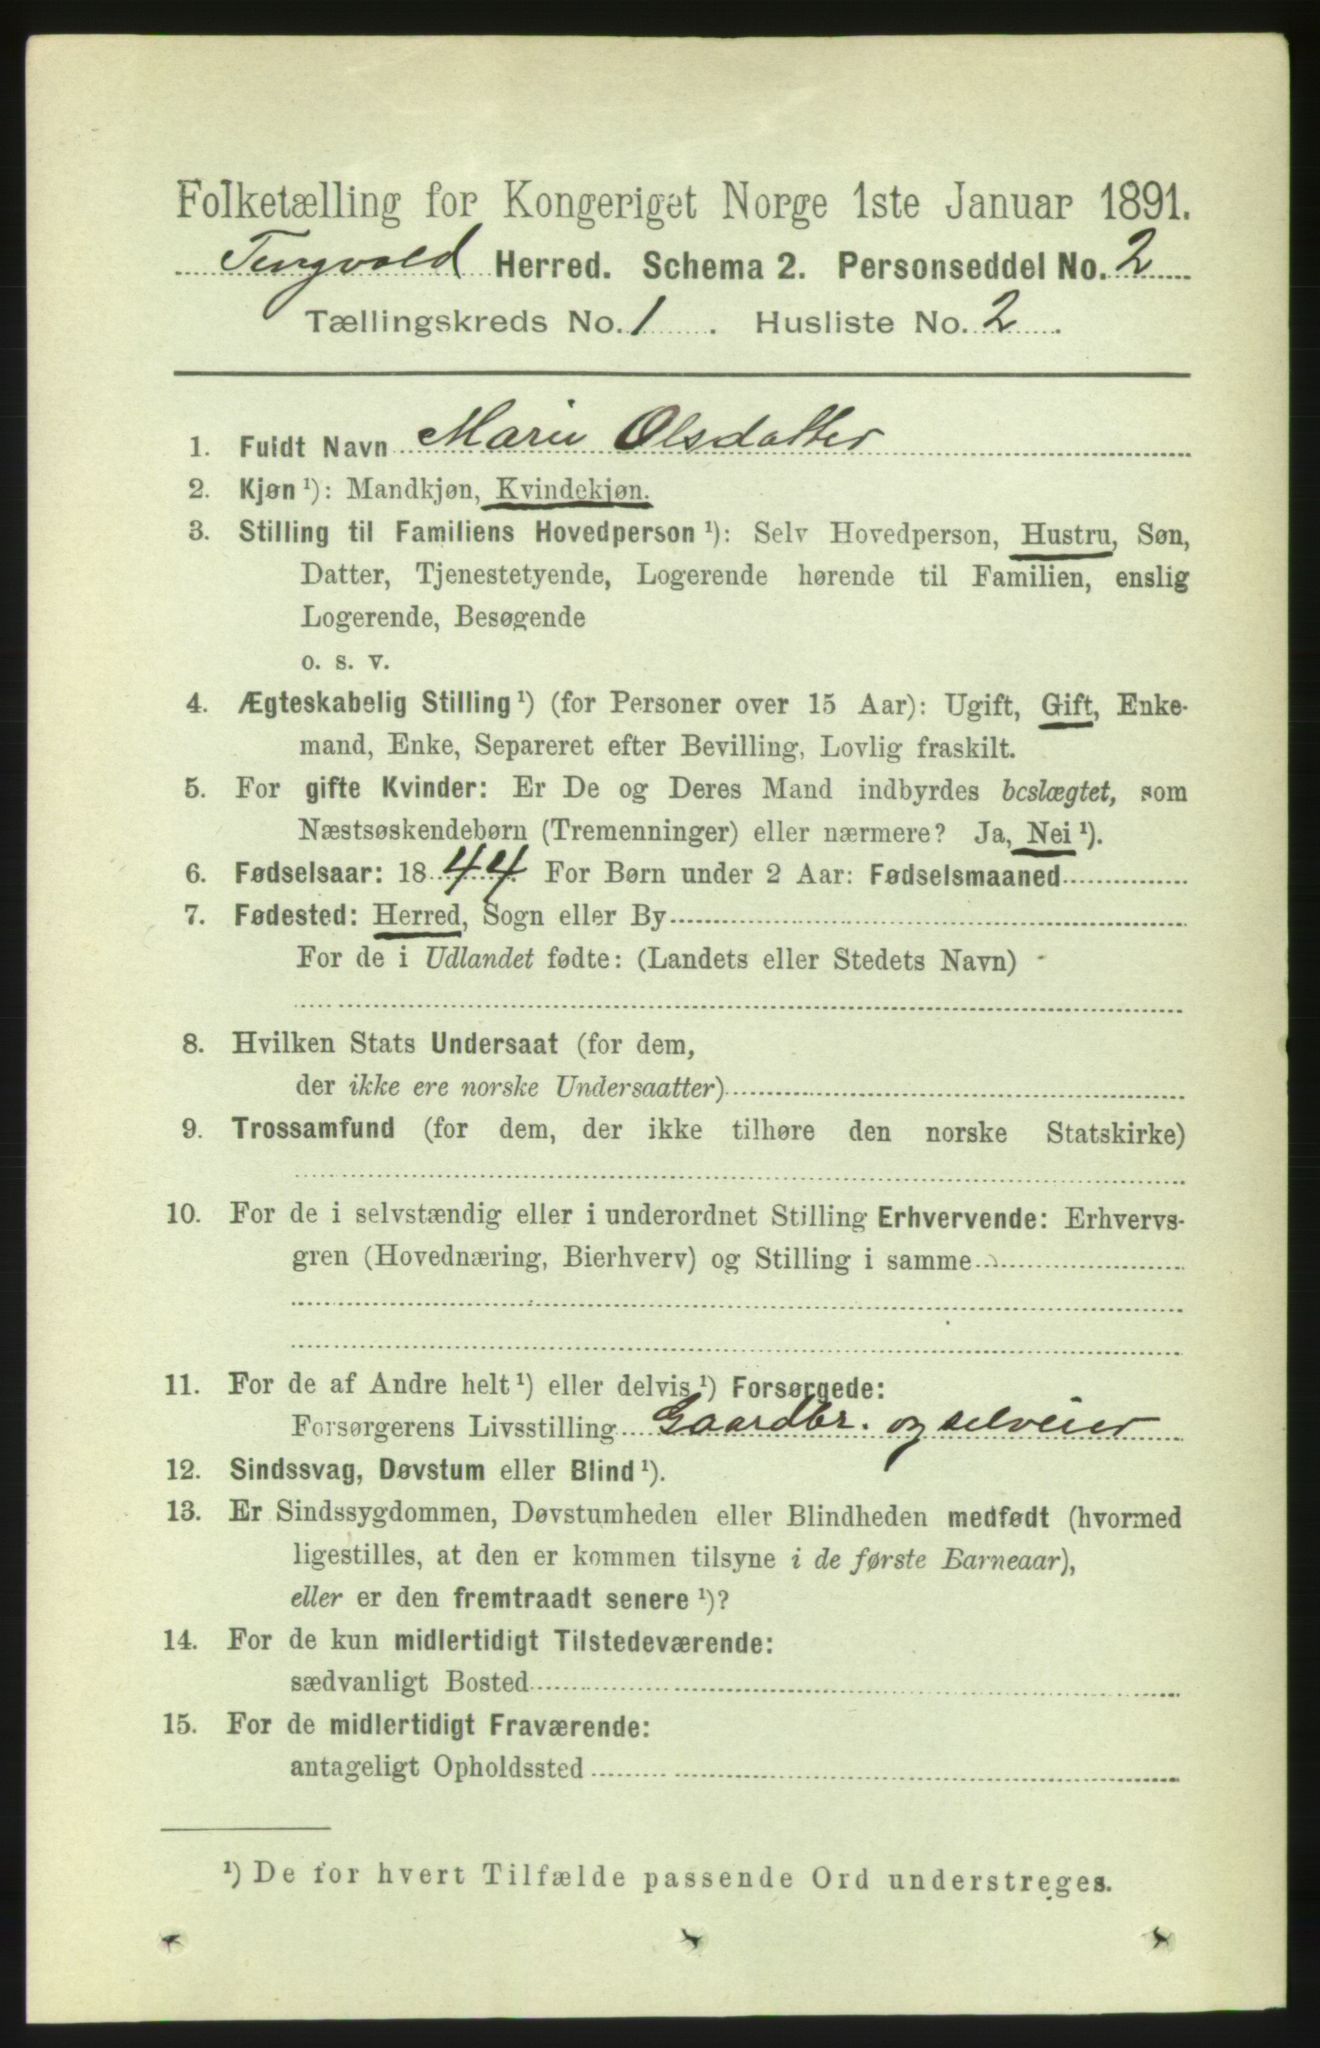 Folketælling for Kongeriget Norge 1ste Januar 1891.
Tingvold Herred. Schema 2. Personseddel No. 2
Tællingskreds No. 1. Husliste No. 2.
1. Fuldt Navn Marie Olsdatter
2. Kjøn ¹): Mandkjøn, Kvindekjøn.
3. Stilling til Familiens Hovedperson ¹): Selv Hovedperson, Hustru, Søn,
Datter, Tjenestetyende, Logerende hørende til Familien, enslig
Logerende, Besøgende
o. s. v.
4. Ægteskabelig Stilling ¹) (for Personer over 15 Aar): Ugift, Gift, Enke-
mand, Enke, Separeret efter Bevilling, Lovlig fraskilt.
5. For gifte Kvinder: Er De og Deres Mand indbyrdes beslægtet, som
Næstsøskendebørn (Tremenninger) eller nærmere? Ja, Nei ¹).
6. Fødselsaar: 1844. For Børn under 2 Aar: Fødselsmaaned
7. Fødested: Herred, Sogn eller By
For de i Udlandet fødte: (Landets eller Stedets Navn)
8. Hvilken Stats Undersaat (for dem,
der ikke ere norske Undersaatter)
9. Trossamfund (for dem, der ikke tilhøre den norske Statskirke)
10. For de i selvstændig eller i underordnet Stilling Erhvervende: Erhvervs-
gren (Hovednæring, Bierhverv) og Stilling i samme
11. For de af Andre helt ¹) eller delvis ¹) Forsørgede:
Forsørgerens Livsstilling Gaardbr. og selveier
12. Sindssvag, Døvstum eller Blind ¹).
13. Er Sindssygdommen, Døvstumheden eller Blindheden medfødt (hvormed
ligestilles, at den er kommen tilsyne i de første Barneaar),
eller er den fremtraadt senere ¹)?
14. For de kun midlertidigt Tilstedeværende:
sædvanligt Bosted
15. For de midlertidigt Fraværende:
antageligt Opholdssted
¹) De for hvert Tilfælde passende Ord understreges.